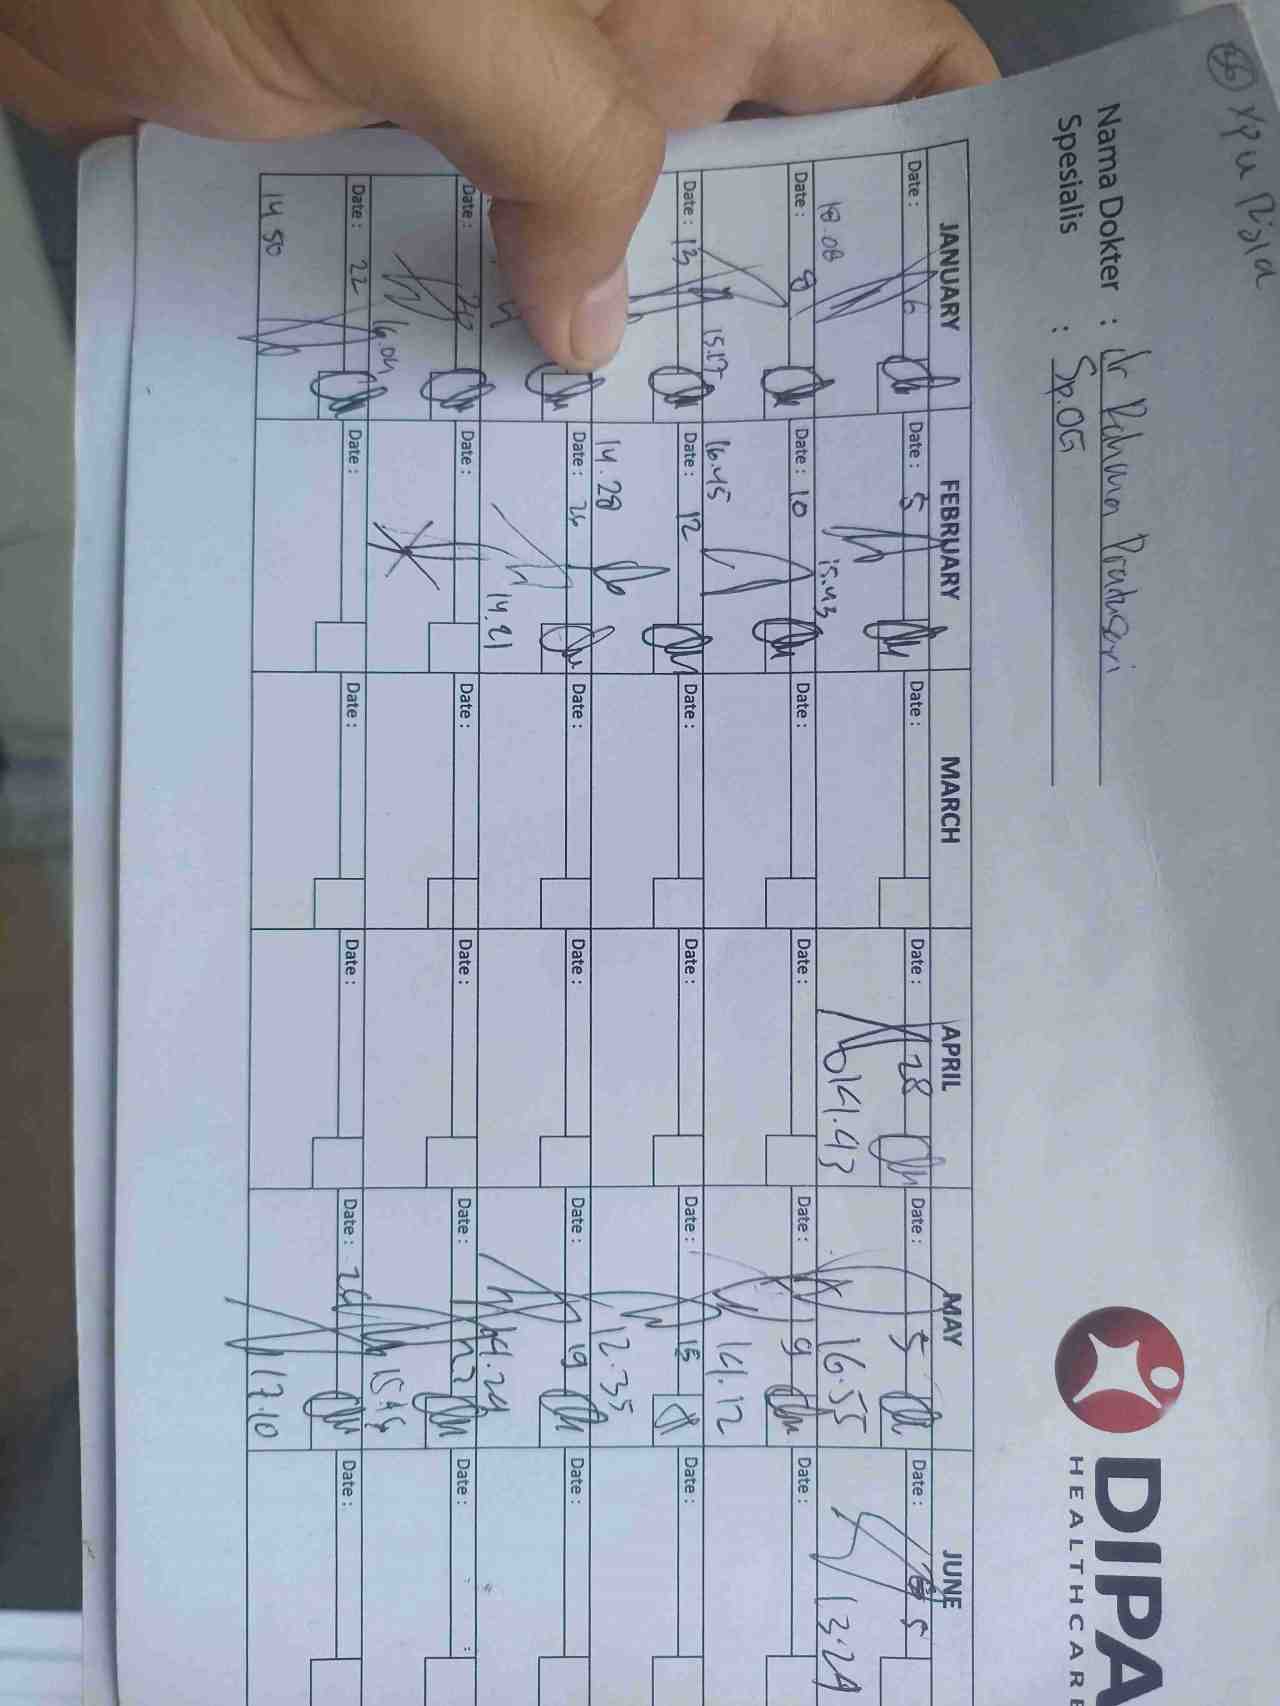 DIPA
HEALTHCARE
Nama Dokter : dr Rahma Pradusari
Spesialis : Sp.OG
JANUARY FEBRUARY MARCH APRIL MAY JUNE
Date : 6 Date : 5 Date : Date : 28 Date : 5 Date : 5
18.08 15.43 14.43 16.55 13.24
Date : 8 Date : 10 Date : Date : Date : 9 Date :
15.17 16.45 14.12
Date : 13 Date : 12 Date : Date : Date : Date :
14.28 12.35
Date : 26 Date : Date : Date : 19 Date :
14.21 14.24
Date : 20 Date : Date : Date : Date : Date :
16.04
Date : 22 Date : Date : Date : Date : 26 Date :
14 50 17.10